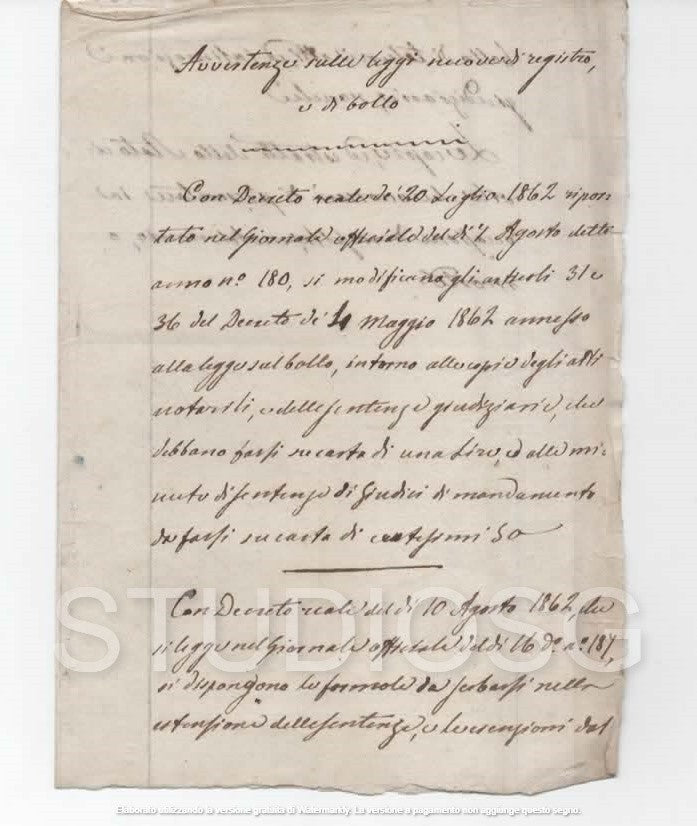 Avvertenze sulle leggi nuove di registro,
e di bollo
Con Decreto reale de' 20 Luglio 1862 ripor
tato nel Giornale officiale del dì 1 Agosto detto
anno n.º 180, si modificano gli articoli 31 e
36 del Decreto de' 4 Maggio 1862 annesso
alla legge sul bollo, intorno alle copie degli atti
notarili, e delle sentenze giudiziarie, che
debbano farsi su carta di una Lira, e alle mi
nute di sentenze di Giudici di mandamento
da farsi su carta di centesimi 50
Con Decreto reale del dì 10 Agosto 1862, che
si legge nel Giornale officiale del dì 16 dº nº 187,
si dispongono le formole da serbarsi nella
estensione delle sentenze, e le esenzioni dal
STUDIOSG
Elaborato utilizzando la versione gratuita di Watermarkly. La versione a pagamento non aggiunge questo segno.